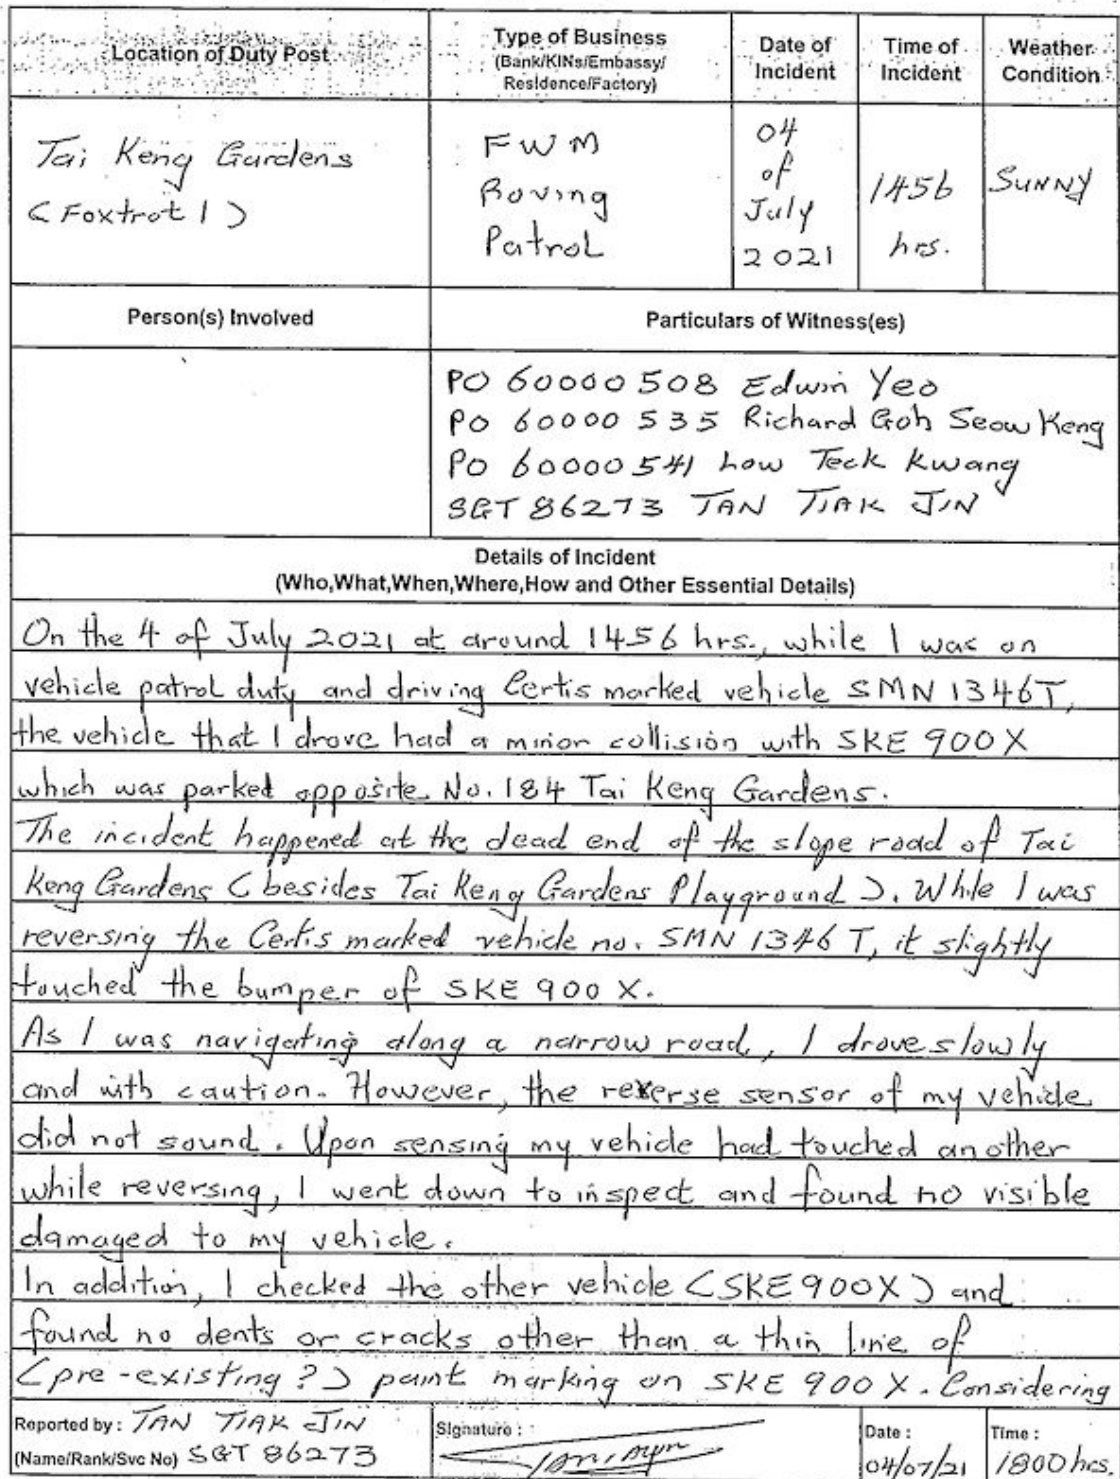 Location of Duty Post
Type of Business
(Bank/KINs/Embassy/
Residence/Factory)
Date of
Incident
Time of
Incident
Weather
Condition
Tai Keng Gardens
(Foxtrot 1)
FWM
Roving
Patrol
04
of
July
2021
1456
hrs.
SUNNY
Person(s) Involved
Particulars of Witness(es)
PO 60000508 Edwin Yeo
PO 60000535 Richard Goh Seow Keng
PO 60000541 Low Teck Kwang
SGT 86273 TAN TIAK JIN
Details of Incident
(Who,What,When,Where,How and Other Essential Details)
On the 4 of July 2021 at around 1456 hrs., while I was on
vehicle patrol duty and driving Certis marked vehicle SMN 1346T,
the vehicle that I drove had a minor collision with SKE 900X
which was parked opposite No. 184 Tai Keng Gardens.
The incident happened at the dead end of the slope road of Tai
Keng Gardens (besides Tai Keng Gardens Playground). While I was
reversing the Certis marked vehicle no. SMN 1346 T, it slightly
touched the bumper of SKE 900 X.
As I was navigating along a narrow road, I drove slowly
and with caution. However, the reverse sensor of my vehicle
did not sound. Upon sensing my vehicle had touched another
while reversing, I went down to inspect and found no visible
damaged to my vehicle.
In addition, I checked the other vehicle (SKE 900X) and
found no dents or cracks other than a thin line of
(pre-existing?) paint marking on SKE 900X. Considering
Reported by: TAN TIAK JIN
(Name/Rank/Svc No) SGT 86273
Signature:
Date:
04/07/21
Time:
1800 hrs